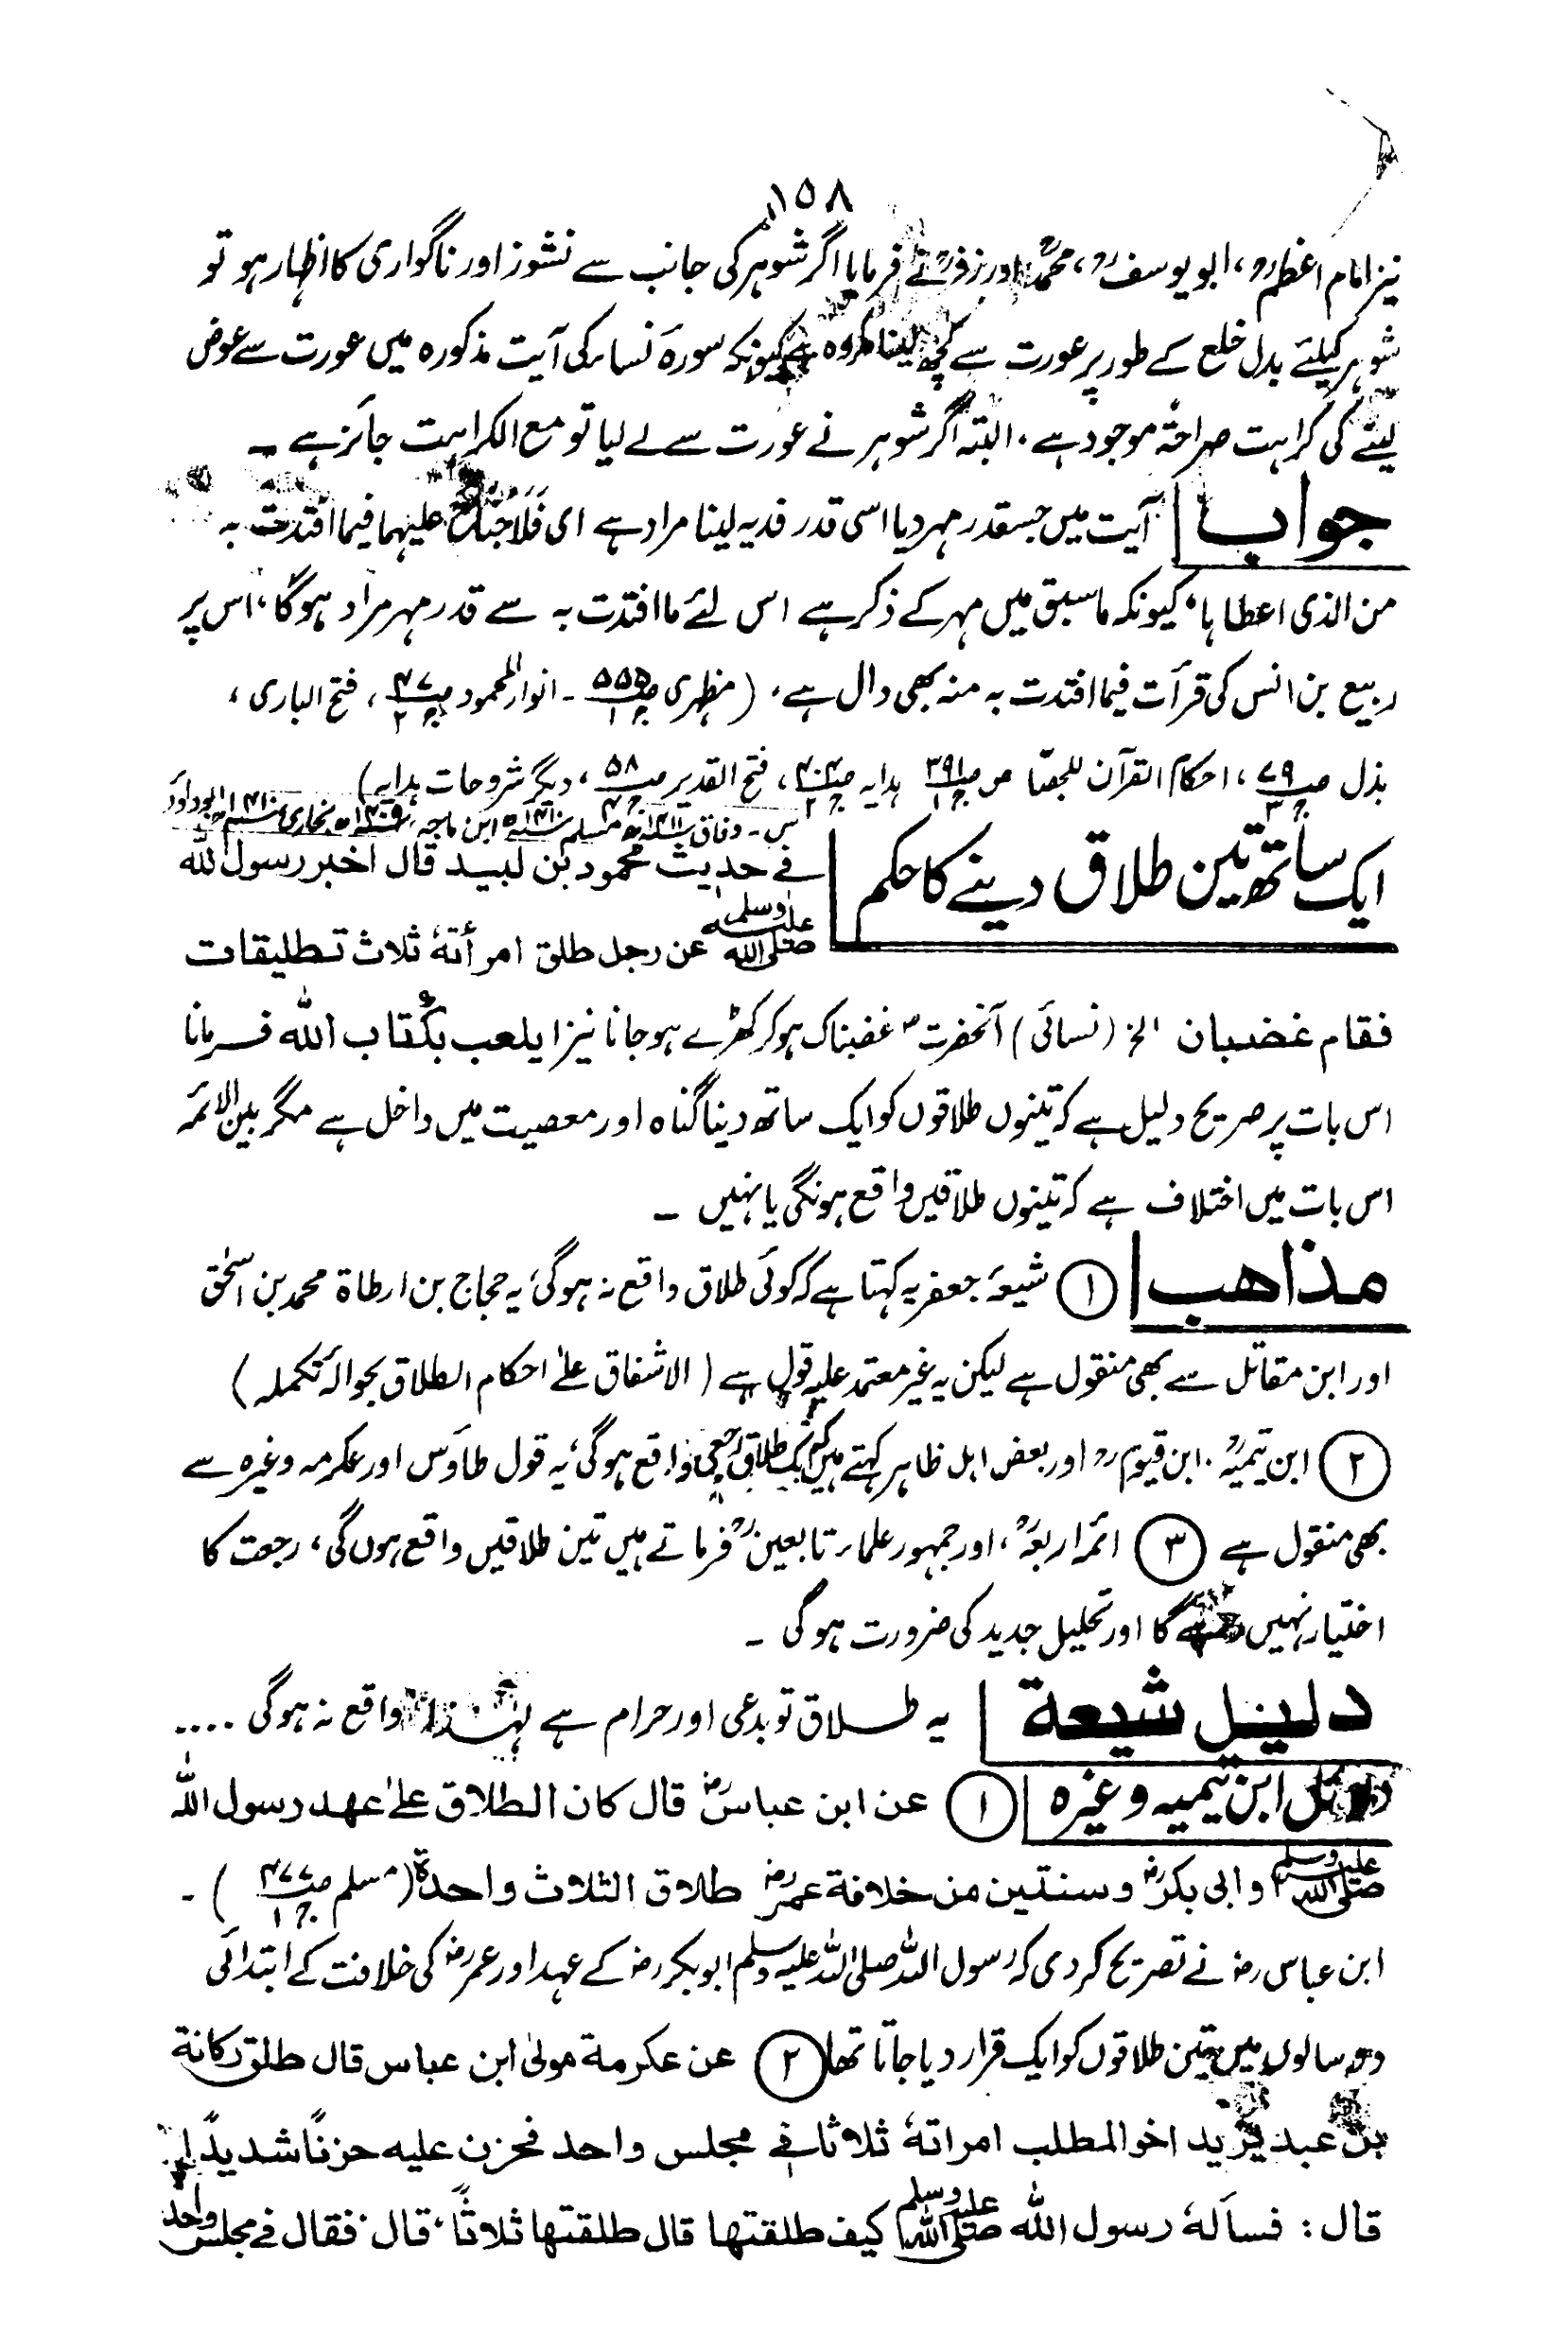 ۱۵۸
نیز امام اعظمؒ، ابو یوسفؒ، محمدؒ اور زفرؒ نے فرمایا اگر شوہر کی جانب سے نشوز اور ناگواری کا اظہار ہو تو
شوہر کیلئے بدل خلع کے طور پر عورت سے کچھ لینا مکروہ ہے کیونکہ سورۂ نساء کی آیت مذکورہ میں عورت سے عوض
لینے کی کراہت صراحۃً موجود ہے۔ البتہ اگر شوہر نے عورت سے لے لیا تو مع الکراہت جائز ہے ۔
جواب آیت میں جسقدر مہر دیا اسی قدر فدیہ لینا مراد ہے ای فَلَا جُنَاحَ علیہما فیما افتدت بہ
من الذی اعطاہا، کیونکہ ماسبق میں مہر کے ذکر ہے اس لئے ما افتدت بہ سے قدر مہر مراد ہوگا، اس پر
ربیع بن انس کی قرأت فیما افتدت بہ منہ بھی دال ہے، (مظہری ص۵۵۵ ج۱ ۔ انوار المحمود ص۴۷ ج۲، فتح الباری ،
بذل ص۷۹ ج۳، احکام القرآن للجصاص ص۳۹۱ ج۱ ہدایہ ص۴۰۴ ج۲، فتح القدیر ص۵۸ ج۴، دیگر شروحات ہدایہ)
ایک ساتھ تین طلاق دینے کا حکم
س ۔ وفاق ۱۴۱۱ھ مسلم ۱۴۱۰ھ ابن ماجہ ۱۴۰۹ھ بخاری ۱۴۱۰ھ ابوداؤد
فی حدیث محمود بن لبید قال اخبر رسول اللہ
صلی اللہ علیہ وسلم عن رجل طلق امرأتہٗ ثلاث تطلیقات
فقام غضبان الخ (نسائی) آنحضرتؐ غضبناک ہو کر کھڑے ہو جانا نیز ایلعب بکتاب اللہ فرمانا
اس بات پر صریح دلیل ہے کہ تینوں طلاقوں کو ایک ساتھ دینا گناہ اور معصیت میں داخل ہے مگر بین الائمہ
اس بات میں اختلاف ہے کہ تینوں طلاقیں واقع ہونگی یا نہیں ۔
مذاھب ① شیعہ جعفریہ کہتا ہے کہ کوئی طلاق واقع نہ ہوگی، یہ حجاج بن ارطاۃ محمد بن اسحٰق
اور ابن مقاتل سے بھی منقول ہے لیکن یہ غیر معتمد علیہ قول ہے (الاشفاق علیٰ احکام الطلاق بحوالہ تکملہ)
② ابن تیمیہؒ، ابن قیومؒ اور بعض اہل ظاہر کہتے ہیں کہ ایک طلاق رجعی واقع ہوگی، یہ قول طاؤس اور عکرمہ وغیرہ سے
بھی منقول ہے ③ ائمہ اربعہؒ، اور جمہور علماء تابعینؒ فرماتے ہیں تین طلاقیں واقع ہوں گی، رجعت کا
اختیار نہیں رہے گا اور تحلیل جدید کی ضرورت ہوگی ۔
دلیل شیعۃ یہ طلاق تو بدعی اور حرام ہے لہٰذا واقع نہ ہوگی ....
دلائل ابن تیمیہ وغیرہ ① عن ابن عباسؓ قال کان الطلاق علیٰ عھد رسول اللہ
صلی اللہ علیہ وسلم وابی بکرؓ وسنتین من خلافۃ عمرؓ طلاق الثلاث واحدۃ (مسلم ص۴۷۷ ج۱) ۔
ابن عباس رضؓ نے تصریح کر دی کہ رسول اللہ صلی اللہ علیہ وسلم ابو بکر رضؓ کے عہد اور عمر رضؓ کی خلافت کے ابتدائی
دو سالوں میں تین طلاقوں کو ایک قرار دیا جاتا تھا ② عن عکرمۃ مولیٰ ابن عباس قال طلق رکانۃ
بن عبد یزید اخو المطلب امراتہٗ ثلاثا فی مجلس واحد فحزن علیہ حزنًا شدیدًا
قال: فسألہٗ رسول اللہ صلی اللہ علیہ وسلم کیف طلقتھا قال طلقتھا ثلاثًا، قال، فقال فی مجلس واحد